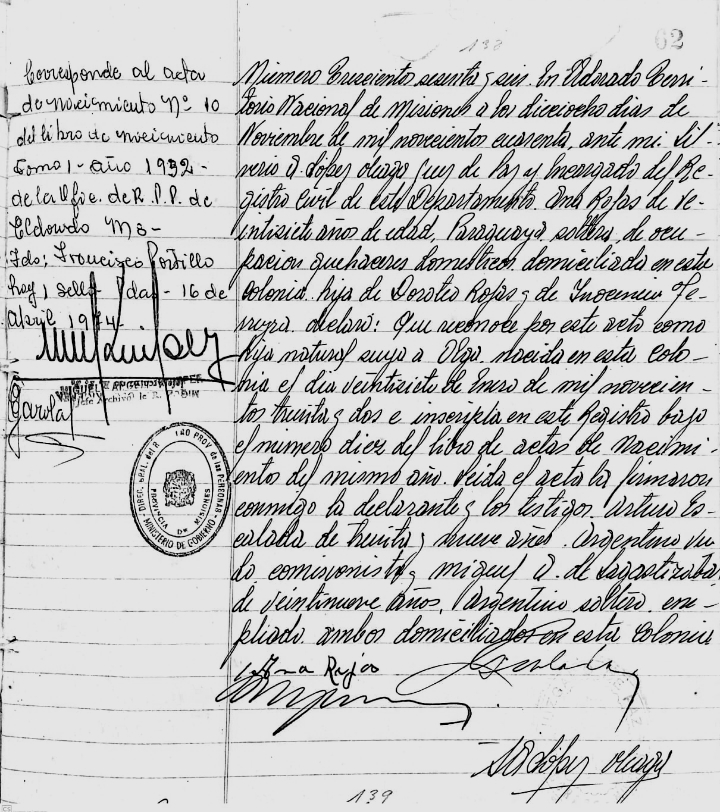 138
62
Corresponde al acta
de nacimiento Nº 10
del libro de nacimiento
tomo 1 - año 1932 -
de la Ofic. de R.P.P. de
Eldorado Ms -
Fdo: Francisco Portillo
hay 1 sello Pdas - 16 de
Abril 1974 -
Garola
DIREC. GRAL. del R PROV de las PERSONAS
PROVINCIA DE MISIONES
MINISTERIO DE GOBIERNO
Número trescientos sesenta y seis. En Eldorado Terri-
torio Nacional de Misiones a los dieciocho dias de
Noviembre de mil novecientos cuarenta, ante mi Sil-
verio A. López Juez de Paz y Encargado del Re-
gistro Civil de este Departamento Ana Rojas de ve-
intisiete años de edad, Paraguaya soltera, de ocu-
pacion quehaceres domesticos domiciliada en esta
colonia, hija de Dorotea Rojas y de Inocencio Fe-
rreyra, declaró: Que reconoce por este acto como
hija natural suya a Olga nacida en esta Colo-
nia el dia veintisiete de Enero de mil novecien-
tos treinta y dos e inscripta en este Registro bajo
el numero diez del libro de actas de Nacimi-
ento del mismo año. Leida el acta la firmaron
conmigo la declarante y los testigos. Arturo Es-
calada de treinta y nueve años. Argentino viu-
do comisionista y Miguel A. de Lagastizabal
de veintinueve años, Argentino soltero em-
pliado ambos domiciliados en esta Colonia
Ana Rojas
Escalada
139